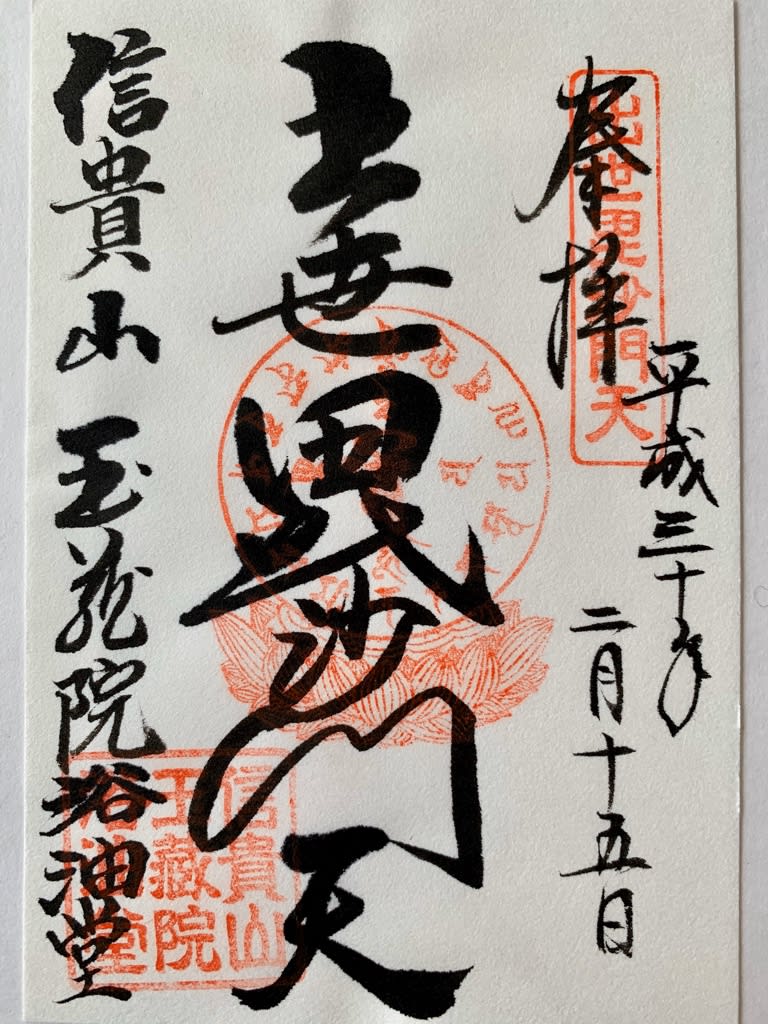 奉拝
出世毘沙門天
平成三十年
二月十五日
出世毘沙門天
信貴山
玉蔵院
浴油堂
信貴山 玉蔵院 浴油堂